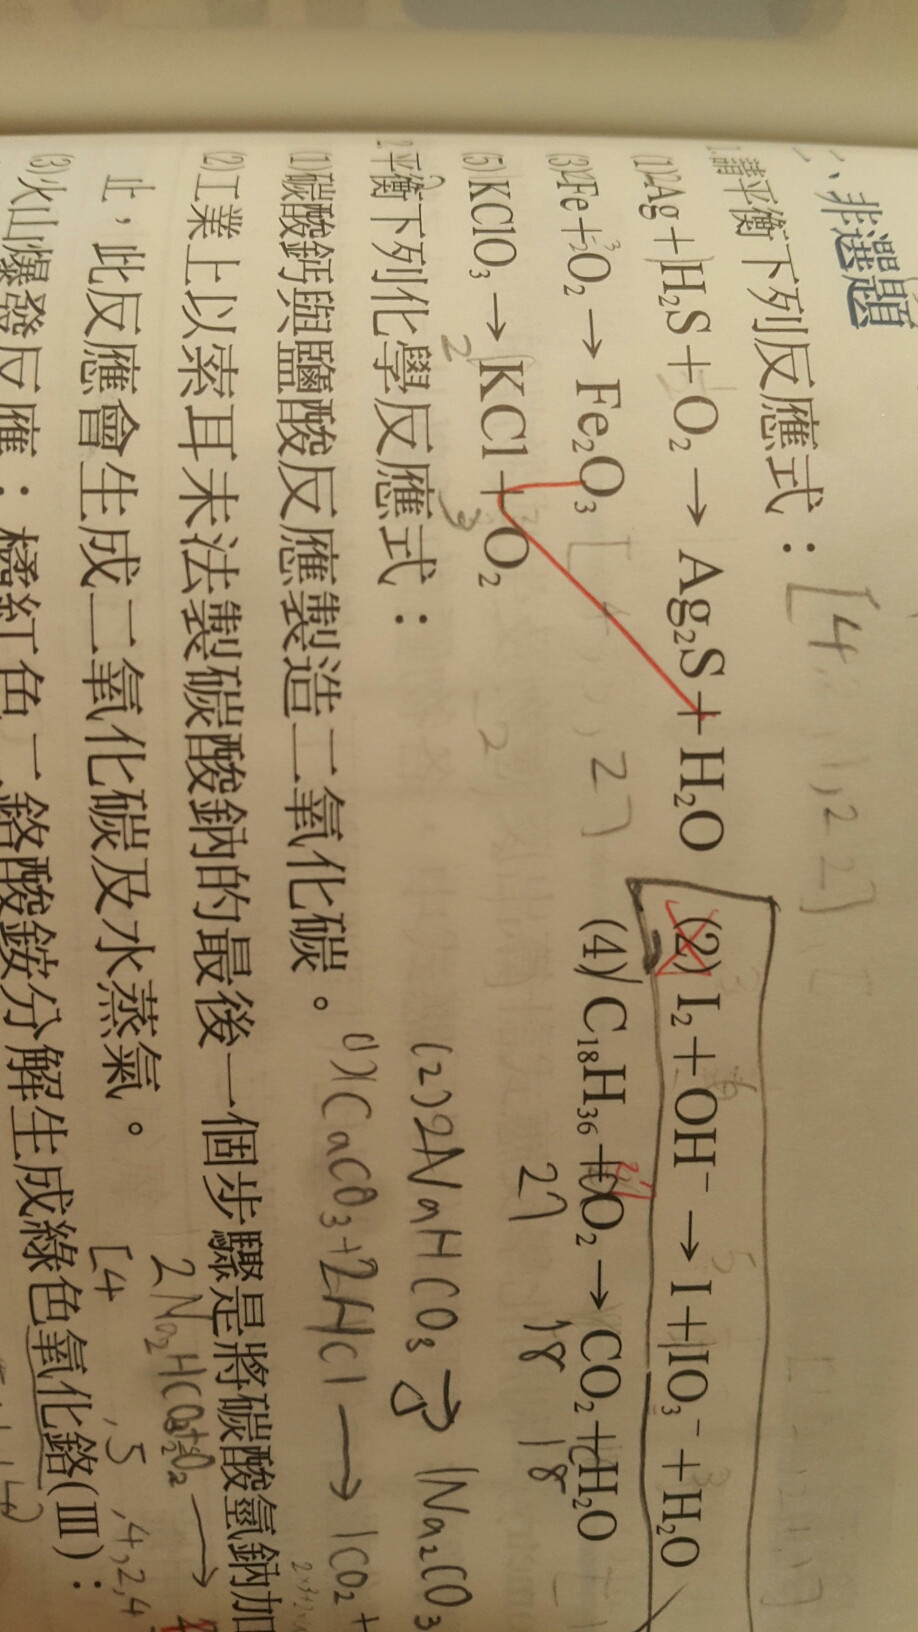 二、非選題
1.請平衡下列反應式：
[4,2,1,2,2]
(1)2Ag+H₂S+O₂→Ag₂S+H₂O
(2) I₂+OH⁻→I+IO₃⁻+H₂O
3 6 5 3
(3)2Fe+3/2O₂→Fe₂O₃
[4,3,2]
(4) C₁₈H₃₆+O₂→CO₂+H₂O
27 18 18
(5)KClO₃→KCl+O₂
2 2 3
2.平衡下列化學反應式：
(2)2NaHCO₃→1Na₂CO₃
(1)碳酸鈣與鹽酸反應製造二氧化碳。
(1)1CaCO₃+2HCl→1CO₂+
(2)工業上以索耳末法製碳酸鈉的最後一個步驟是將碳酸氫鈉加
止，此反應會生成二氧化碳及水蒸氣。
2Na₂HCO₃+O₂→
[4,5,4,2,4
(3)火山爆發反應：橘紅色二鉻酸銨分解生成綠色氧化鉻(Ⅲ)：